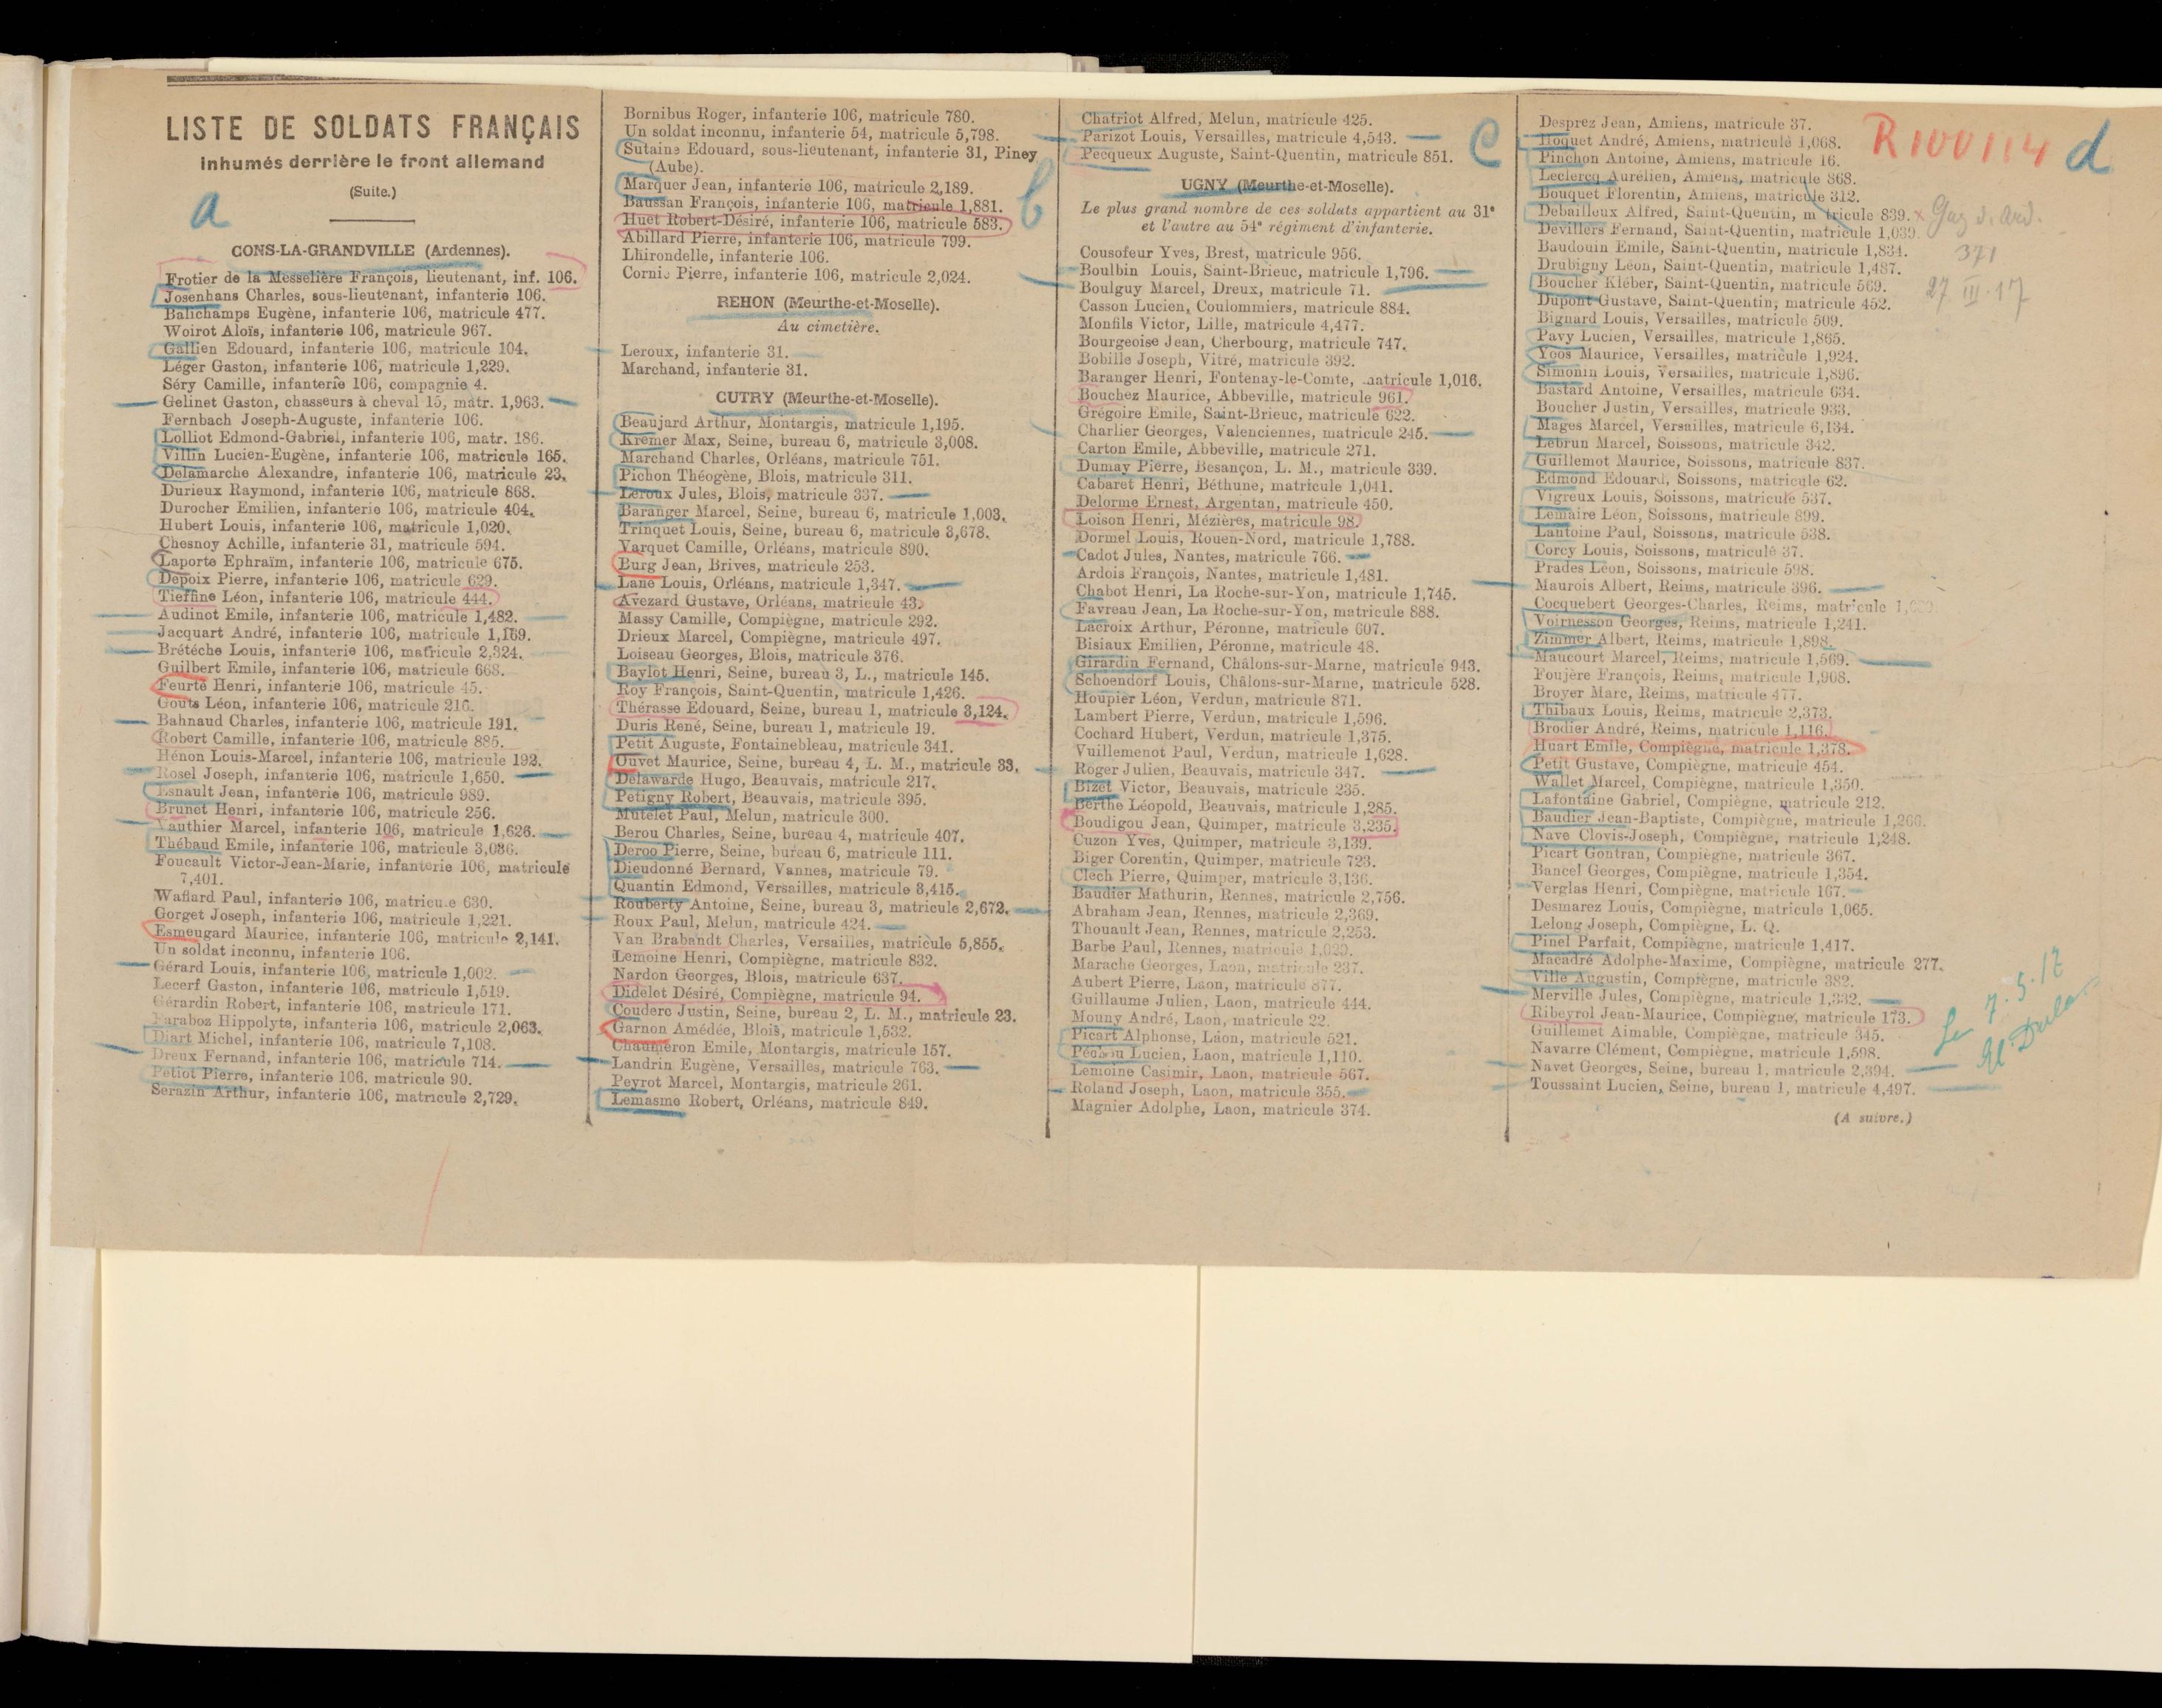 LISTE DE SOLDATS FRANÇAIS
inhumés derrière le front allemand
(Suite.)
a
CONS-LA-GRANDVILLE (Ardennes).
Frotier de la Messelière François, lieutenant, inf. 106.
Josenhans Charles, sous-lieutenant, infanterie 106.
Balichamps Eugène, infanterie 106, matricule 477.
Woirot Aloïs, infanterie 106, matricule 967.
Gallien Edouard, infanterie 106, matricule 104.
Léger Gaston, infanterie 106, matricule 1,229.
Séry Camille, infanterie 106, compagnie 4.
Gelinet Gaston, chasseurs à cheval 15, matr. 1,963.
Fernbach Joseph-Auguste, infanterie 106.
Lolliot Edmond-Gabriel, infanterie 106, matr. 186.
Villin Lucien-Eugène, infanterie 106, matricule 165.
Delamarche Alexandre, infanterie 106, matricule 23.
Durieux Raymond, infanterie 106, matricule 868.
Durocher Emilien, infanterie 106, matricule 404.
Hubert Louis, infanterie 106, matricule 1,020.
Chesnoy Achille, infanterie 31, matricule 594.
Laporte Ephraïm, infanterie 106, matricule 675.
Depoix Pierre, infanterie 106, matricule 629.
Tieffine Léon, infanterie 106, matricule 444.
Audinot Emile, infanterie 106, matricule 1,482.
Jacquart André, infanterie 106, matricule 1,169.
Brétéche Louis, infanterie 106, matricule 2,324.
Guilbert Emile, infanterie 106, matricule 668.
Feurté Henri, infanterie 106, matricule 45.
Gouts Léon, infanterie 106, matricule 216.
Bahnaud Charles, infanterie 106, matricule 191.
Robert Camille, infanterie 106, matricule 885.
Hénon Louis-Marcel, infanterie 106, matricule 192.
Rosel Joseph, infanterie 106, matricule 1,650.
Esnault Jean, infanterie 106, matricule 989.
Brunet Henri, infanterie 106, matricule 256.
Vauthier Marcel, infanterie 106, matricule 1,626.
Thébaud Emile, infanterie 106, matricule 3,036.
Foucault Victor-Jean-Marie, infanterie 106, matricule
7,401.
Waflard Paul, infanterie 106, matricule 630.
Gorget Joseph, infanterie 106, matricule 1,221.
Esmeugard Maurice, infanterie 106, matricule 2,141.
Un soldat inconnu, infanterie 106.
Gérard Louis, infanterie 106, matricule 1,002.
Lecerf Gaston, infanterie 106, matricule 1,519.
Gérardin Robert, infanterie 106, matricule 171.
Faraboz Hippolyte, infanterie 106, matricule 2,063.
Diart Michel, infanterie 106, matricule 7,108.
Dreux Fernand, infanterie 106, matricule 714.
Petiot Pierre, infanterie 106, matricule 90.
Serazin Arthur, infanterie 106, matricule 2,729.
Bornibus Roger, infanterie 106, matricule 780.
Un soldat inconnu, infanterie 54, matricule 5,798.
Sutaine Edouard, sous-lieutenant, infanterie 31, Piney
(Aube).
b
Marquer Jean, infanterie 106, matricule 2,189.
Baussan François, infanterie 106, matricule 1,881.
Huet Robert-Désiré, infanterie 106, matricule 583.
Abillard Pierre, infanterie 106, matricule 799.
Lhirondelle, infanterie 106.
Cornic Pierre, infanterie 106, matricule 2,024.
REHON (Meurthe-et-Moselle).
Au cimetière.
Leroux, infanterie 31.
Marchand, infanterie 31.
CUTRY (Meurthe-et-Moselle).
Beaujard Arthur, Montargis, matricule 1,195.
Kremer Max, Seine, bureau 6, matricule 3,008.
Marchand Charles, Orléans, matricule 751.
Pichon Théogène, Blois, matricule 311.
Leroux Jules, Blois, matricule 337.
Baranger Marcel, Seine, bureau 6, matricule 1,003.
Trinquet Louis, Seine, bureau 6, matricule 3,678.
Varquet Camille, Orléans, matricule 890.
Burg Jean, Brives, matricule 253.
Lane Louis, Orléans, matricule 1,347.
Avezard Gustave, Orléans, matricule 43.
Massy Camille, Compiègne, matricule 292.
Drieux Marcel, Compiègne, matricule 497.
Loiseau Georges, Blois, matricule 376.
Baylot Henri, Seine, bureau 3, L., matricule 145.
Roy François, Saint-Quentin, matricule 1,426.
Thérasse Edouard, Seine, bureau 1, matricule 3,124.
Duris René, Seine, bureau 1, matricule 19.
Petit Auguste, Fontainebleau, matricule 341.
Ouvet Maurice, Seine, bureau 4, L. M., matricule 33.
Delawarde Hugo, Beauvais, matricule 217.
Petigny Robert, Beauvais, matricule 395.
Mutelet Paul, Melun, matricule 300.
Berou Charles, Seine, bureau 4, matricule 407.
Deroo Pierre, Seine, bureau 6, matricule 111.
Dieudonné Bernard, Vannes, matricule 79.
Quantin Edmond, Versailles, matricule 3,415.
Rouberty Antoine, Seine, bureau 3, matricule 2,672.
Roux Paul, Melun, matricule 424.
Van Brabandt Charles, Versailles, matricule 5,855.
Lemoine Henri, Compiègne, matricule 832.
Nardon Georges, Blois, matricule 637.
Didelet Désiré, Compiègne, matricule 94.
Couderc Justin, Seine, bureau 2, L. M., matricule 23.
Garnon Amédée, Blois, matricule 1,532.
Chauméron Emile, Montargis, matricule 157.
Landrin Eugène, Versailles, matricule 763.
Peyrot Marcel, Montargis, matricule 261.
Lemasme Robert, Orléans, matricule 849.
Chatriot Alfred, Melun, matricule 425.
Parizot Louis, Versailles, matricule 4,543.
Pecqueux Auguste, Saint-Quentin, matricule 851.
c
UGNY (Meurthe-et-Moselle).
Le plus grand nombre de ces soldats appartient au 31e
et l'autre au 54e régiment d'infanterie.
Cousofeur Yves, Brest, matricule 956.
Boulbin Louis, Saint-Brieuc, matricule 1,796.
Boulguy Marcel, Dreux, matricule 71.
Casson Lucien, Coulommiers, matricule 884.
Monfils Victor, Lille, matricule 4,477.
Bourgeoise Jean, Cherbourg, matricule 747.
Bobille Joseph, Vitré, matricule 392.
Baranger Henri, Fontenay-le-Comte, matricule 1,016.
Bouchez Maurice, Abbeville, matricule 961.
Grégoire Emile, Saint-Brieuc, matricule 622.
Charlier Georges, Valenciennes, matricule 245.
Carton Emile, Abbeville, matricule 271.
Dumay Pierre, Besançon, L. M., matricule 339.
Cabaret Henri, Béthune, matricule 1,041.
Delorme Ernest, Argentan, matricule 450.
Loison Henri, Mézières, matricule 98.
Dormel Louis, Rouen-Nord, matricule 1,788.
Cadot Jules, Nantes, matricule 766.
Ardois François, Nantes, matricule 1,481.
Chabot Henri, La Roche-sur-Yon, matricule 1,745.
Favreau Jean, La Roche-sur-Yon, matricule 888.
Lacroix Arthur, Péronne, matricule 607.
Bisiaux Emilien, Péronne, matricule 48.
Girardin Fernand, Châlons-sur-Marne, matricule 943.
Schoendorf Louis, Châlons-sur-Marne, matricule 528.
Houpier Léon, Verdun, matricule 871.
Lambert Pierre, Verdun, matricule 1,596.
Cochard Hubert, Verdun, matricule 1,375.
Vuillemenot Paul, Verdun, matricule 1,628.
Roger Julien, Beauvais, matricule 347.
Bizet Victor, Beauvais, matricule 235.
Berthe Léopold, Beauvais, matricule 1,285.
Boudigou Jean, Quimper, matricule 3,235.
Cuzon Yves, Quimper, matricule 3,139.
Biger Corentin, Quimper, matricule 723.
Clech Pierre, Quimper, matricule 3,136.
Baudier Mathurin, Rennes, matricule 2,756.
Abraham Jean, Rennes, matricule 2,369.
Thouault Jean, Rennes, matricule 2,253.
Barbe Paul, Rennes, matricule
Marache Georges, Laon, matricule 237.
Aubert Pierre, Laon, matricule 877.
Guillaume Julien, Laon, matricule 444.
Mouny André, Laon, matricule 22.
Picart Alphonse, Laon, matricule 521.
Lucien, Laon, matricule 1,110.
Lemoine Casimir, Laon, matricule 567.
Roland Joseph, Laon, matricule 355.
Magnier Adolphe, Laon, matricule 374.
R100114 d
Desprez Jean, Amiens, matricule 37.
Hoquet André, Amiens, matricule 1,068.
Pinchon Antoine, Amiens, matricule 16.
Leclercq Aurélien, Amiens, matricule 868.
Bouquet Florentin, Amiens, matricule 312.
Debailloux Alfred, Saint-Quentin, m tricule 839.
Devillers Fernand, Saint-Quentin, matricule 1,039.
Baudouin Emile, Saint-Quentin, matricule 1,834.
Drubigny Léon, Saint-Quentin, matricule 1,487.
Boucher Kléber, Saint-Quentin, matricule 569.
Dupont Gustave, Saint-Quentin, matricule 452.
Bignard Louis, Versailles, matricule 509.
Pavy Lucien, Versailles, matricule 1,865.
Yoos Maurice, Versailles, matricule 1,924.
Simonin Louis, Versailles, matricule 1,896.
Bastard Antoine, Versailles, matricule 634.
Boucher Justin, Versailles, matricule 933.
Mages Marcel, Versailles, matricule 6,134.
Lebrun Marcel, Soissons, matricule 342.
Guillemot Maurice, Soissons, matricule 837.
Edmond Edouard, Soissons, matricule 62.
Vigreux Louis, Soissons, matricule 537.
Lemaire Léon, Soissons, matricule 899.
Lantoine Paul, Soissons, matricule 538.
Corcy Louis, Soissons, matricule 37.
Prades Léon, Soissons, matricule 598.
Maurois Albert, Reims, matricule 396.
Cocquebert Georges-Charles, Reims, matricule
Voirnesson Georges, Reims, matricule 1,241.
Zimmer Albert, Reims, matricule 1,898.
Maucourt Marcel, Reims, matricule 1,569.
Foujère François, Reims, matricule 1,908.
Broyer Marc, Reims, matricule 477.
Thibaux Louis, Reims, matricule 2,373.
Brodier André, Reims, matricule 1,116.
Huart Emile, Compiègne, matricule 1,378.
Petit Gustave, Compiègne, matricule 454.
Wallet Marcel, Compiègne, matricule 1,350.
Lafontaine Gabriel, Compiègne, matricule 212.
Baudier Jean-Baptiste, Compiègne, matricule 1,266.
Nave Clovis-Joseph, Compiègne, matricule 1,248.
Picart Gontran, Compiègne, matricule 367.
Bancel Georges, Compiègne, matricule 1,354.
Verglas Henri, Compiègne, matricule 167.
Desmarez Louis, Compiègne, matricule 1,065.
Lelong Joseph, Compiègne, L. Q.
Pinel Parfait, Compiègne, matricule 1,417.
Macadré Adolphe-Maxime, Compiègne, matricule 277.
Ville Augustin, Compiègne, matricule 382.
Merville Jules, Compiègne, matricule 1,332.
Ribeyrol Jean-Maurice, Compiègne, matricule 173.
Guillemet Aimable, Compiègne, matricule 345.
Navarre Clément, Compiègne, matricule 1,598.
Navet Georges, Seine, bureau 1, matricule 2,394.
Toussaint Lucien, Seine, bureau 1, matricule 4,497.
(A suivre.)
Gaz. d. Ard.
371
27 III 17
7.5.17